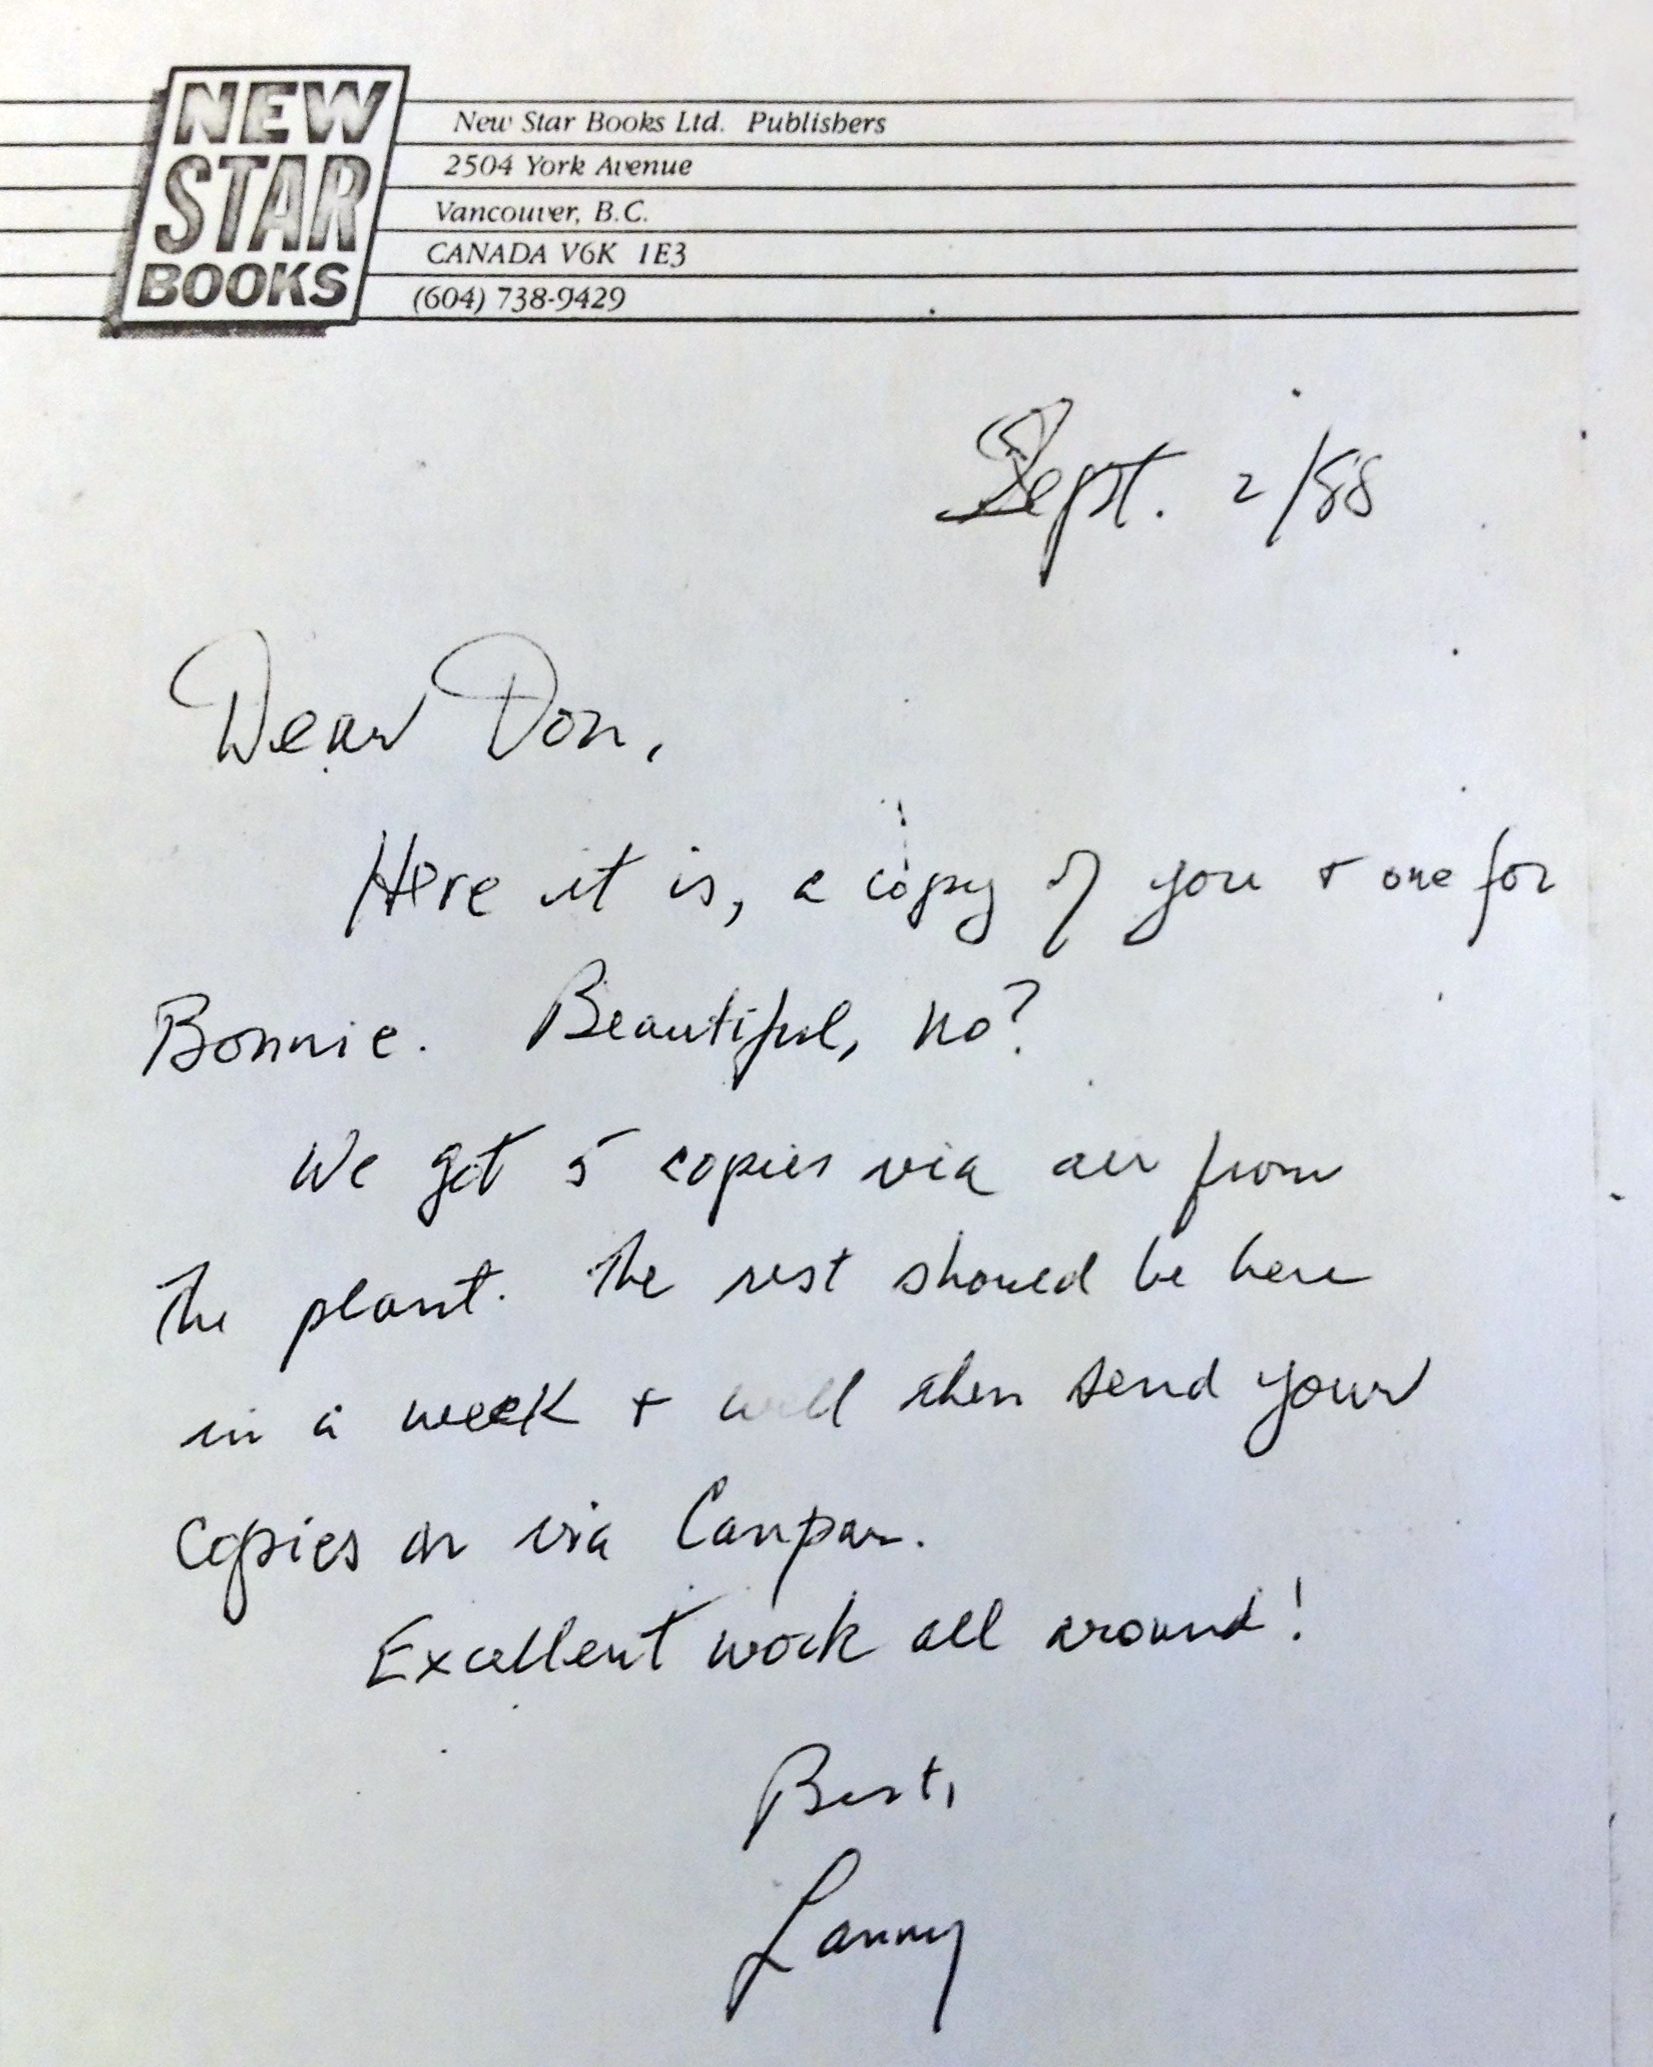 NEW
STAR
BOOKS
New Star Books Ltd. Publishers
2504 York Avenue
Vancouver, B.C.
CANADA V6K 1E3
(604) 738-9429
Sept. 2/88
Dear Don,
Here it is, a copy of you + one for
Bonnie. Beautiful, no?
We got 5 copies via air from
the plant. The rest should be here
in a week + will then send your
copies on via Canpar.
Excellent work all around!
Best,
Lanny